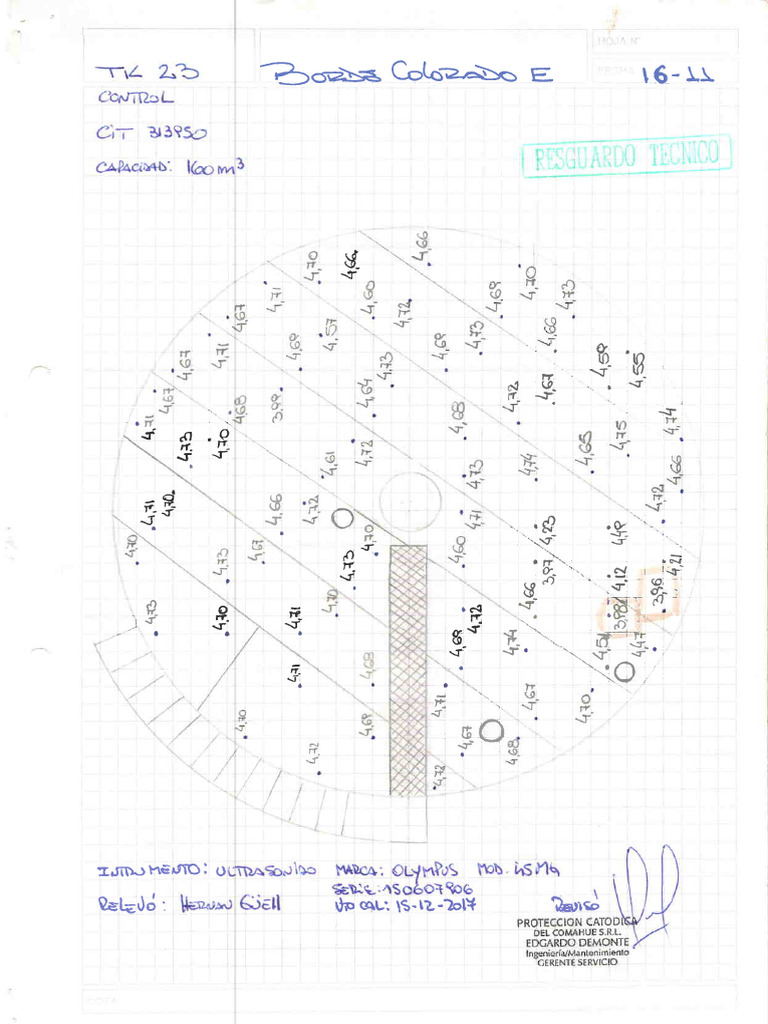 HOJA N°
TK 23
BORDE COLORADO E
FECHA
16-11
CONTROL
CIT 313950
CAPACIDAD: 160 m³
RESGUARDO TECNICO
4,66
4,70
4,66
4,71
4,60
4,69
4,70
4,73
4,67
4,57
4,72
4,73
4,66
4,67
4,71
4,69
4,73
4,69
4,59
4,55
4,67
4,68
3,99
4,64
4,72
4,67
4,71
4,73
4,70
4,72
4,68
4,65
4,75
4,74
4,61
4,73
4,74
4,66
4,71
4,70
4,66
4,72
4,71
4,23
4,49
4,72
4,70
4,73
4,67
4,73
4,70
4,60
3,97
4,12
4,21
4,73
4,70
4,71
4,70
4,69
4,72
4,66
3,98
3,96
4,71
4,68
4,74
4,51
4,47
4,70
4,72
4,69
4,71
4,67
4,67
4,68
4,70
4,72
INTRUMENTO: ULTRASONIDO MARCA: OLYMPUS MOD. 45MG
SERIE: 150607906
RELEVÓ: HERNAN GÜELL VTO CAL: 15-12-2017 REVISÓ
PROTECCION CATODICA
DEL COMAHUE S.R.L.
EDGARDO DEMONTE
Ingeniería/Mantenimiento
GERENTE SERVICIO
NOTA